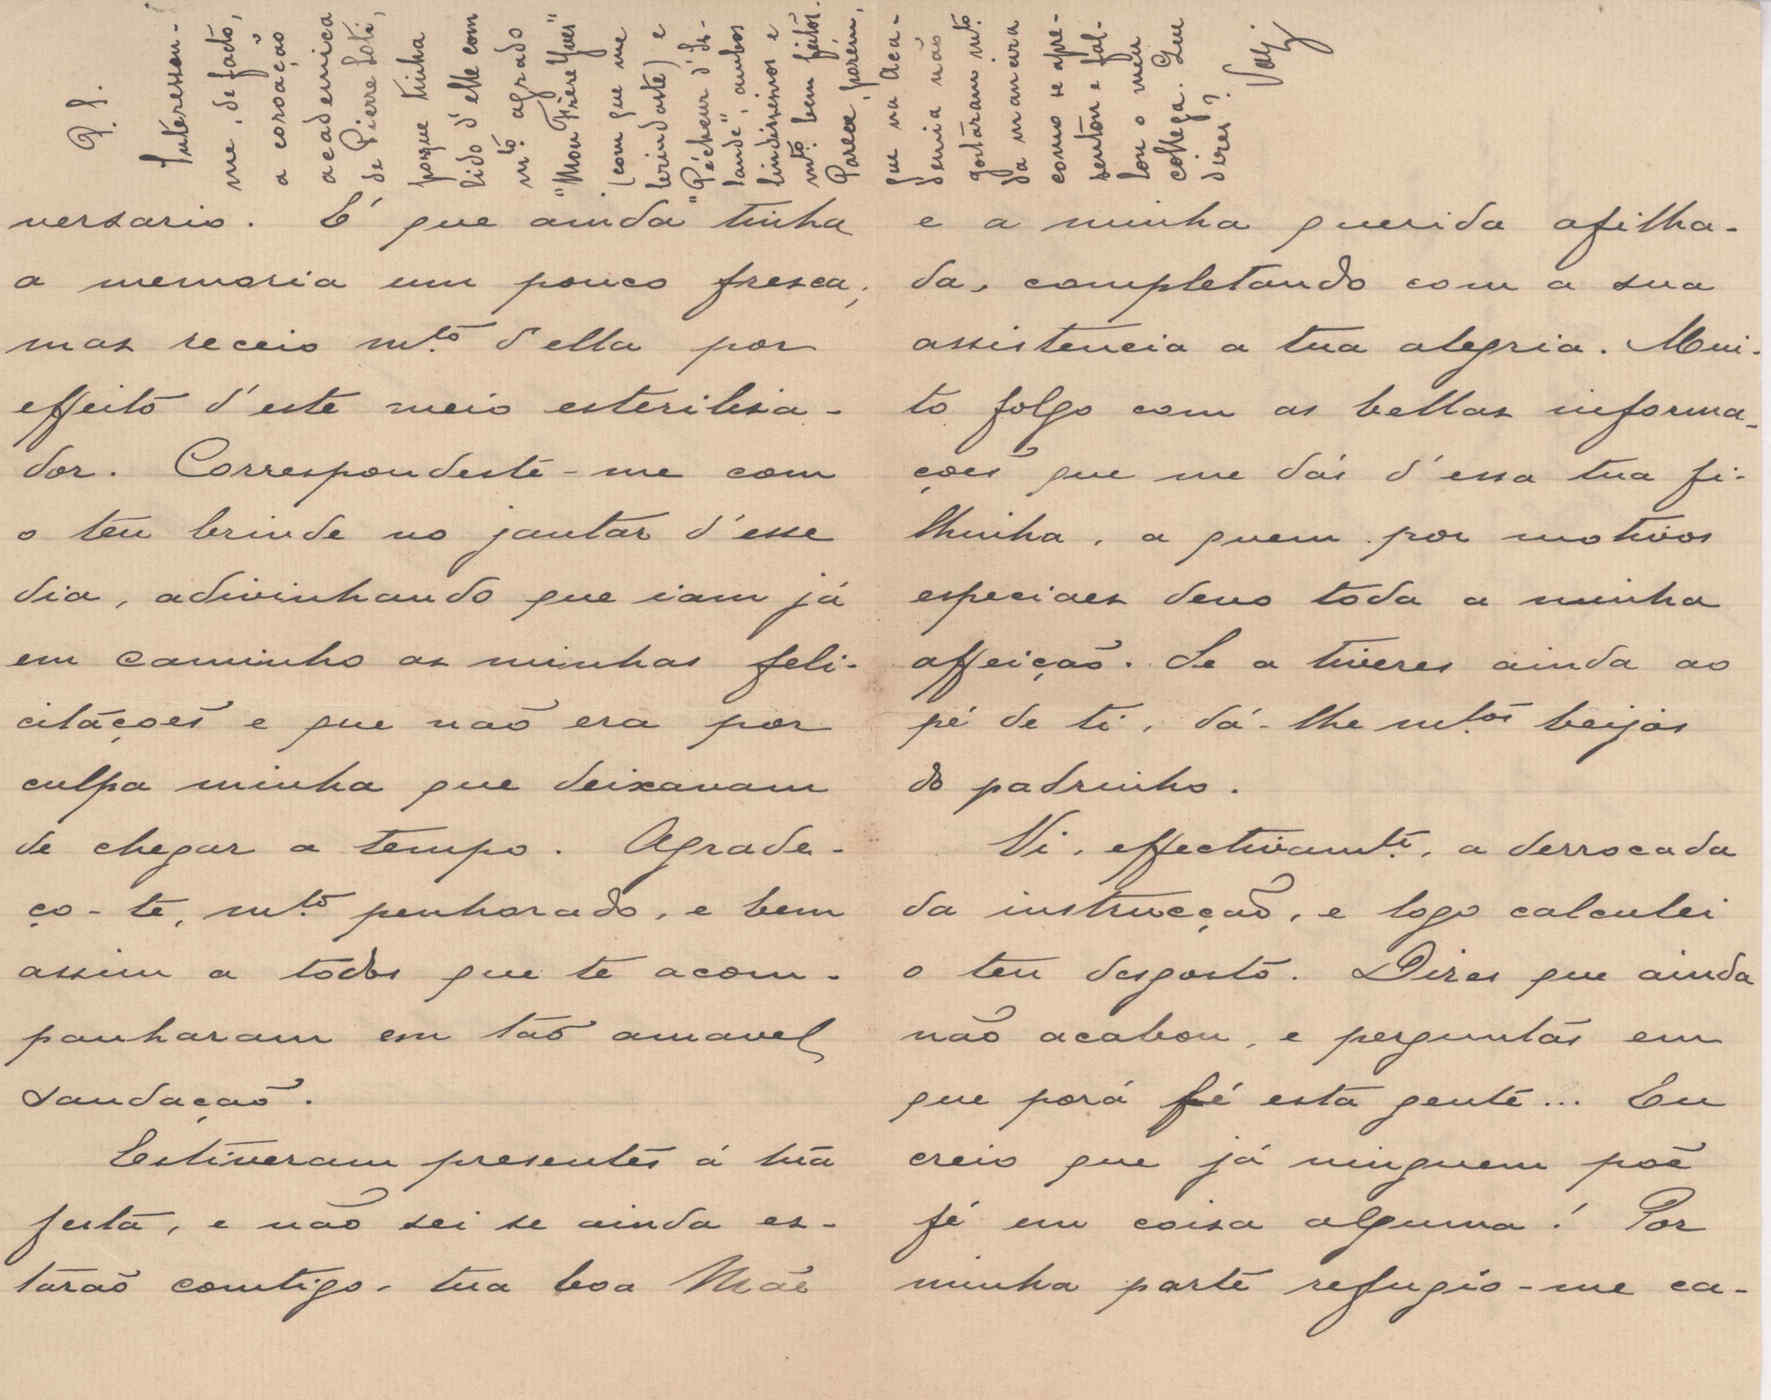 versario. É que ainda tinha
a memoria um pouco fresca;
mas receio mto d'ella por
effeito d'este meio esterilisa-
dor. Correspondeste-me com
o teu brinde no jantar d'esse
dia, adivinhando que iam já
em caminho as minhas feli-
citações e que não era por
culpa minha que deixavam
de chegar a tempo. Agrade-
ço-te, mto penhorado, e bem
assim a todos que te acom-
panharam em tão amavel
saudação.
Estiveram presentes á tua
festa, e não sei se ainda es-
tarão comtigo, tua boa Mãe
e a minha querida afilha-
da, completando com a sua
assistencia a tua alegria. Mui-
to folgo com as bellas informa-
ções que me dás d'essa tua fi-
lhinha, a quem por motivos
especiaes devo toda a minha
affeição. Se a tiveres ainda ao
pé de ti, dá-lhe mtos beijos
do padrinho.
Vi, effectivamte, a derrocada
da instrucção, e logo calculei
o teu desgosto. Dizes que ainda
não acabou, e perguntas em
que porá fé esta gente... Eu
creio que já ninguem põe
fé em coisa alguma! Por
minha parte refugio-me ca-
P. S.
Interessou-
me, de facto,
a coroação
academica
de Pierre Loti,
porque tinha
lido d'elle com
mto agrado
"Mon Frère Yves"
(com que me
brindaste) e
"Pêcheur d'Is-
lande", ambos
lindissimos e
mto bem feitos.
Parece, porém,
que na Aca-
demia não
gostaram mto
da maneira
como se apre-
sentou e fal-
lou o meu
collega. Que
dizes?